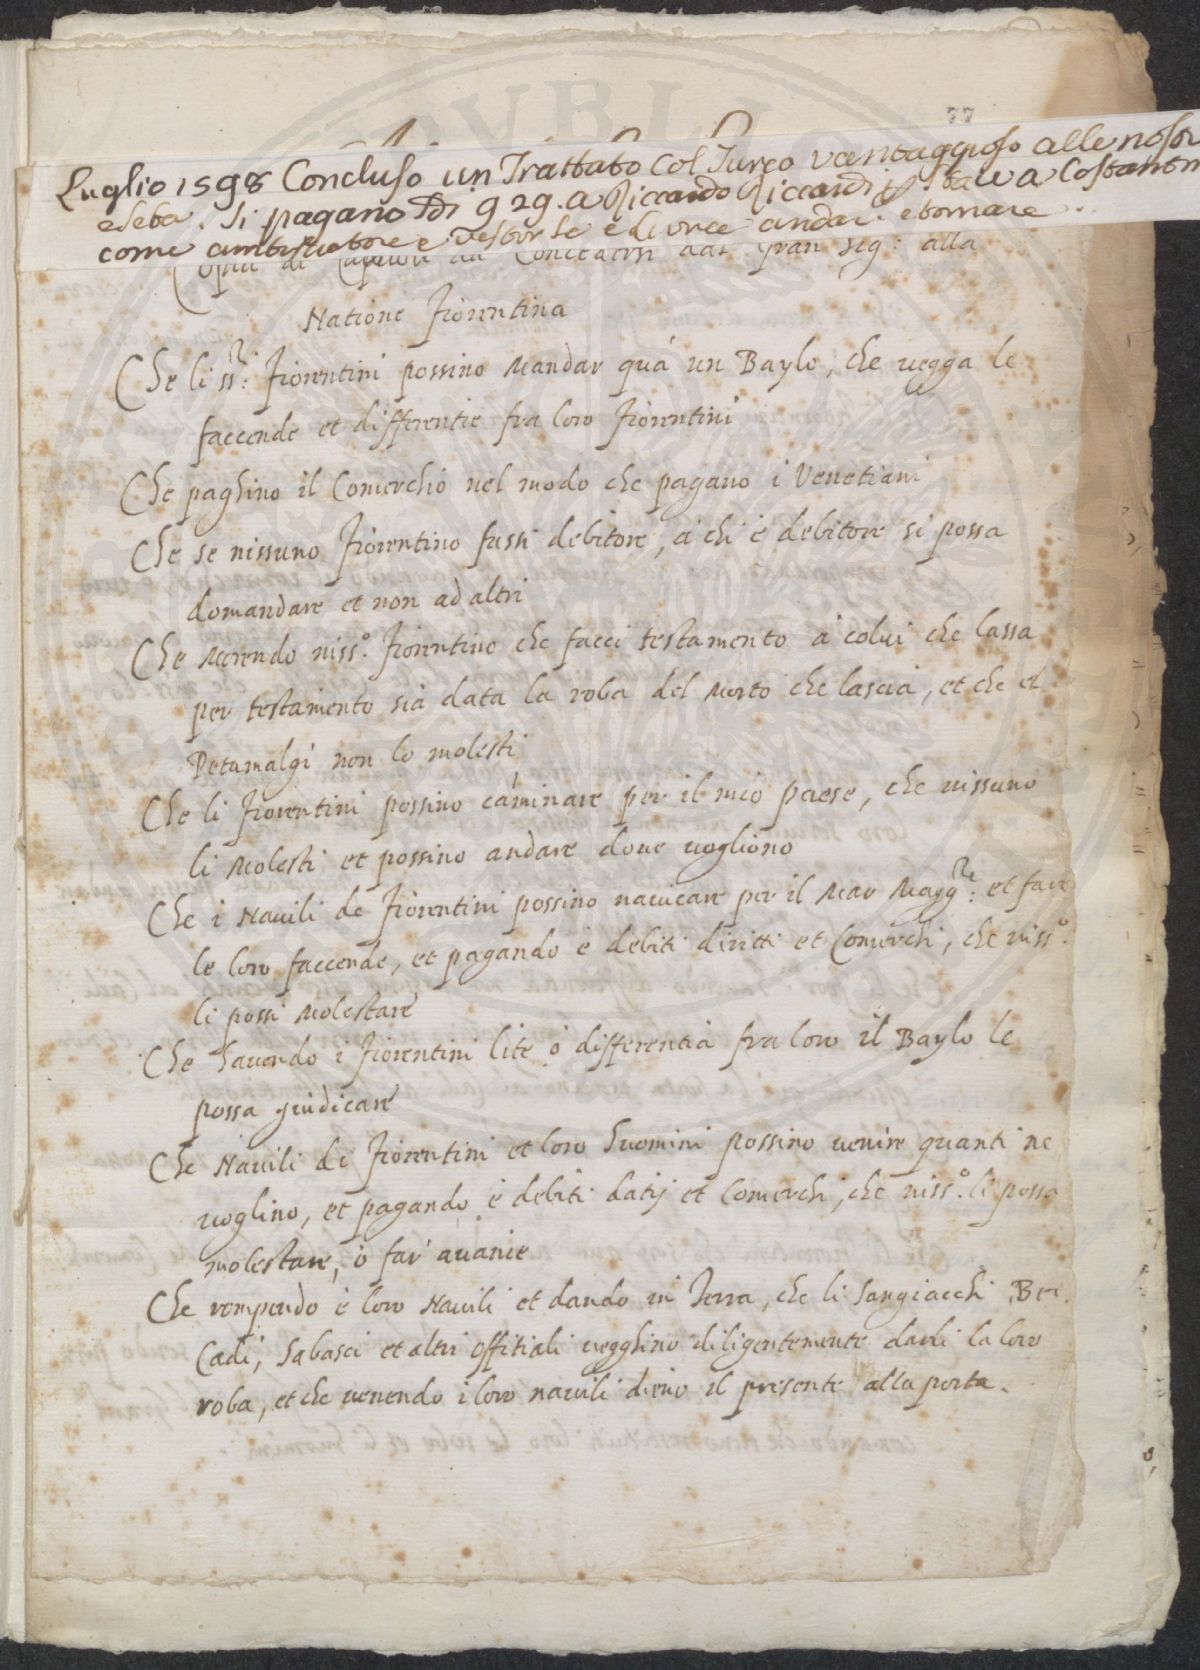 77
Luglio 1598 Concluso un Trattato Col Turco vantaggioso alle nostre
e Seta. Si pagano di 929. a Riccardo Riccardi Costantin
come ambasciatore e andar. e tornare.
Copia di Capitoli da Concedersi dal Gran Sig.r alla
Natione Fiorentina
Che li ss.ri Fiorentini possino Mandar quà un Baylo, che uegga le
faccende et differentie fra loro Fiorentini
Che paghino il Comerchio nel modo che pagano i Venetiani
Che se nissuno Fiorentino fussi debitore, à chi è debitore si possa
domandare et non ad altri
Che Morendo niss.o Fiorentino che facci testamento à colui che lassa
per testamento sia data la roba del Morto che lascia, et che el
Petamalgi non lo molesti
Che li Fiorentini possino caminare per il mio paese, che nissuno
li Molesti et possino andare doue uogliono
Che i Nauili de Fiorentini possino nauicare per il Mar Magg.re et fare
le loro faccende, et pagando è debiti diritti et Comerchi, che niss.o
li possi Molestare
Che hauendo i Fiorentini lite ò differentia fra loro il Baylo le
possa giudicare
Che Nauili de Fiorentini et loro huomini possino uenire quanti ne
uoglino, et pagando è debiti datij et Comerchi, che niss.o li possa
molestare, ò far auanie
Che rompendo è loro Nauili et dando in Terra, che li Sangiacchi, Bei
Cadi, Sabasci et altri offitiali uegghino diligentemente darli la loro
roba, et che uenendo i loro nauili dieno il presente alla porta.